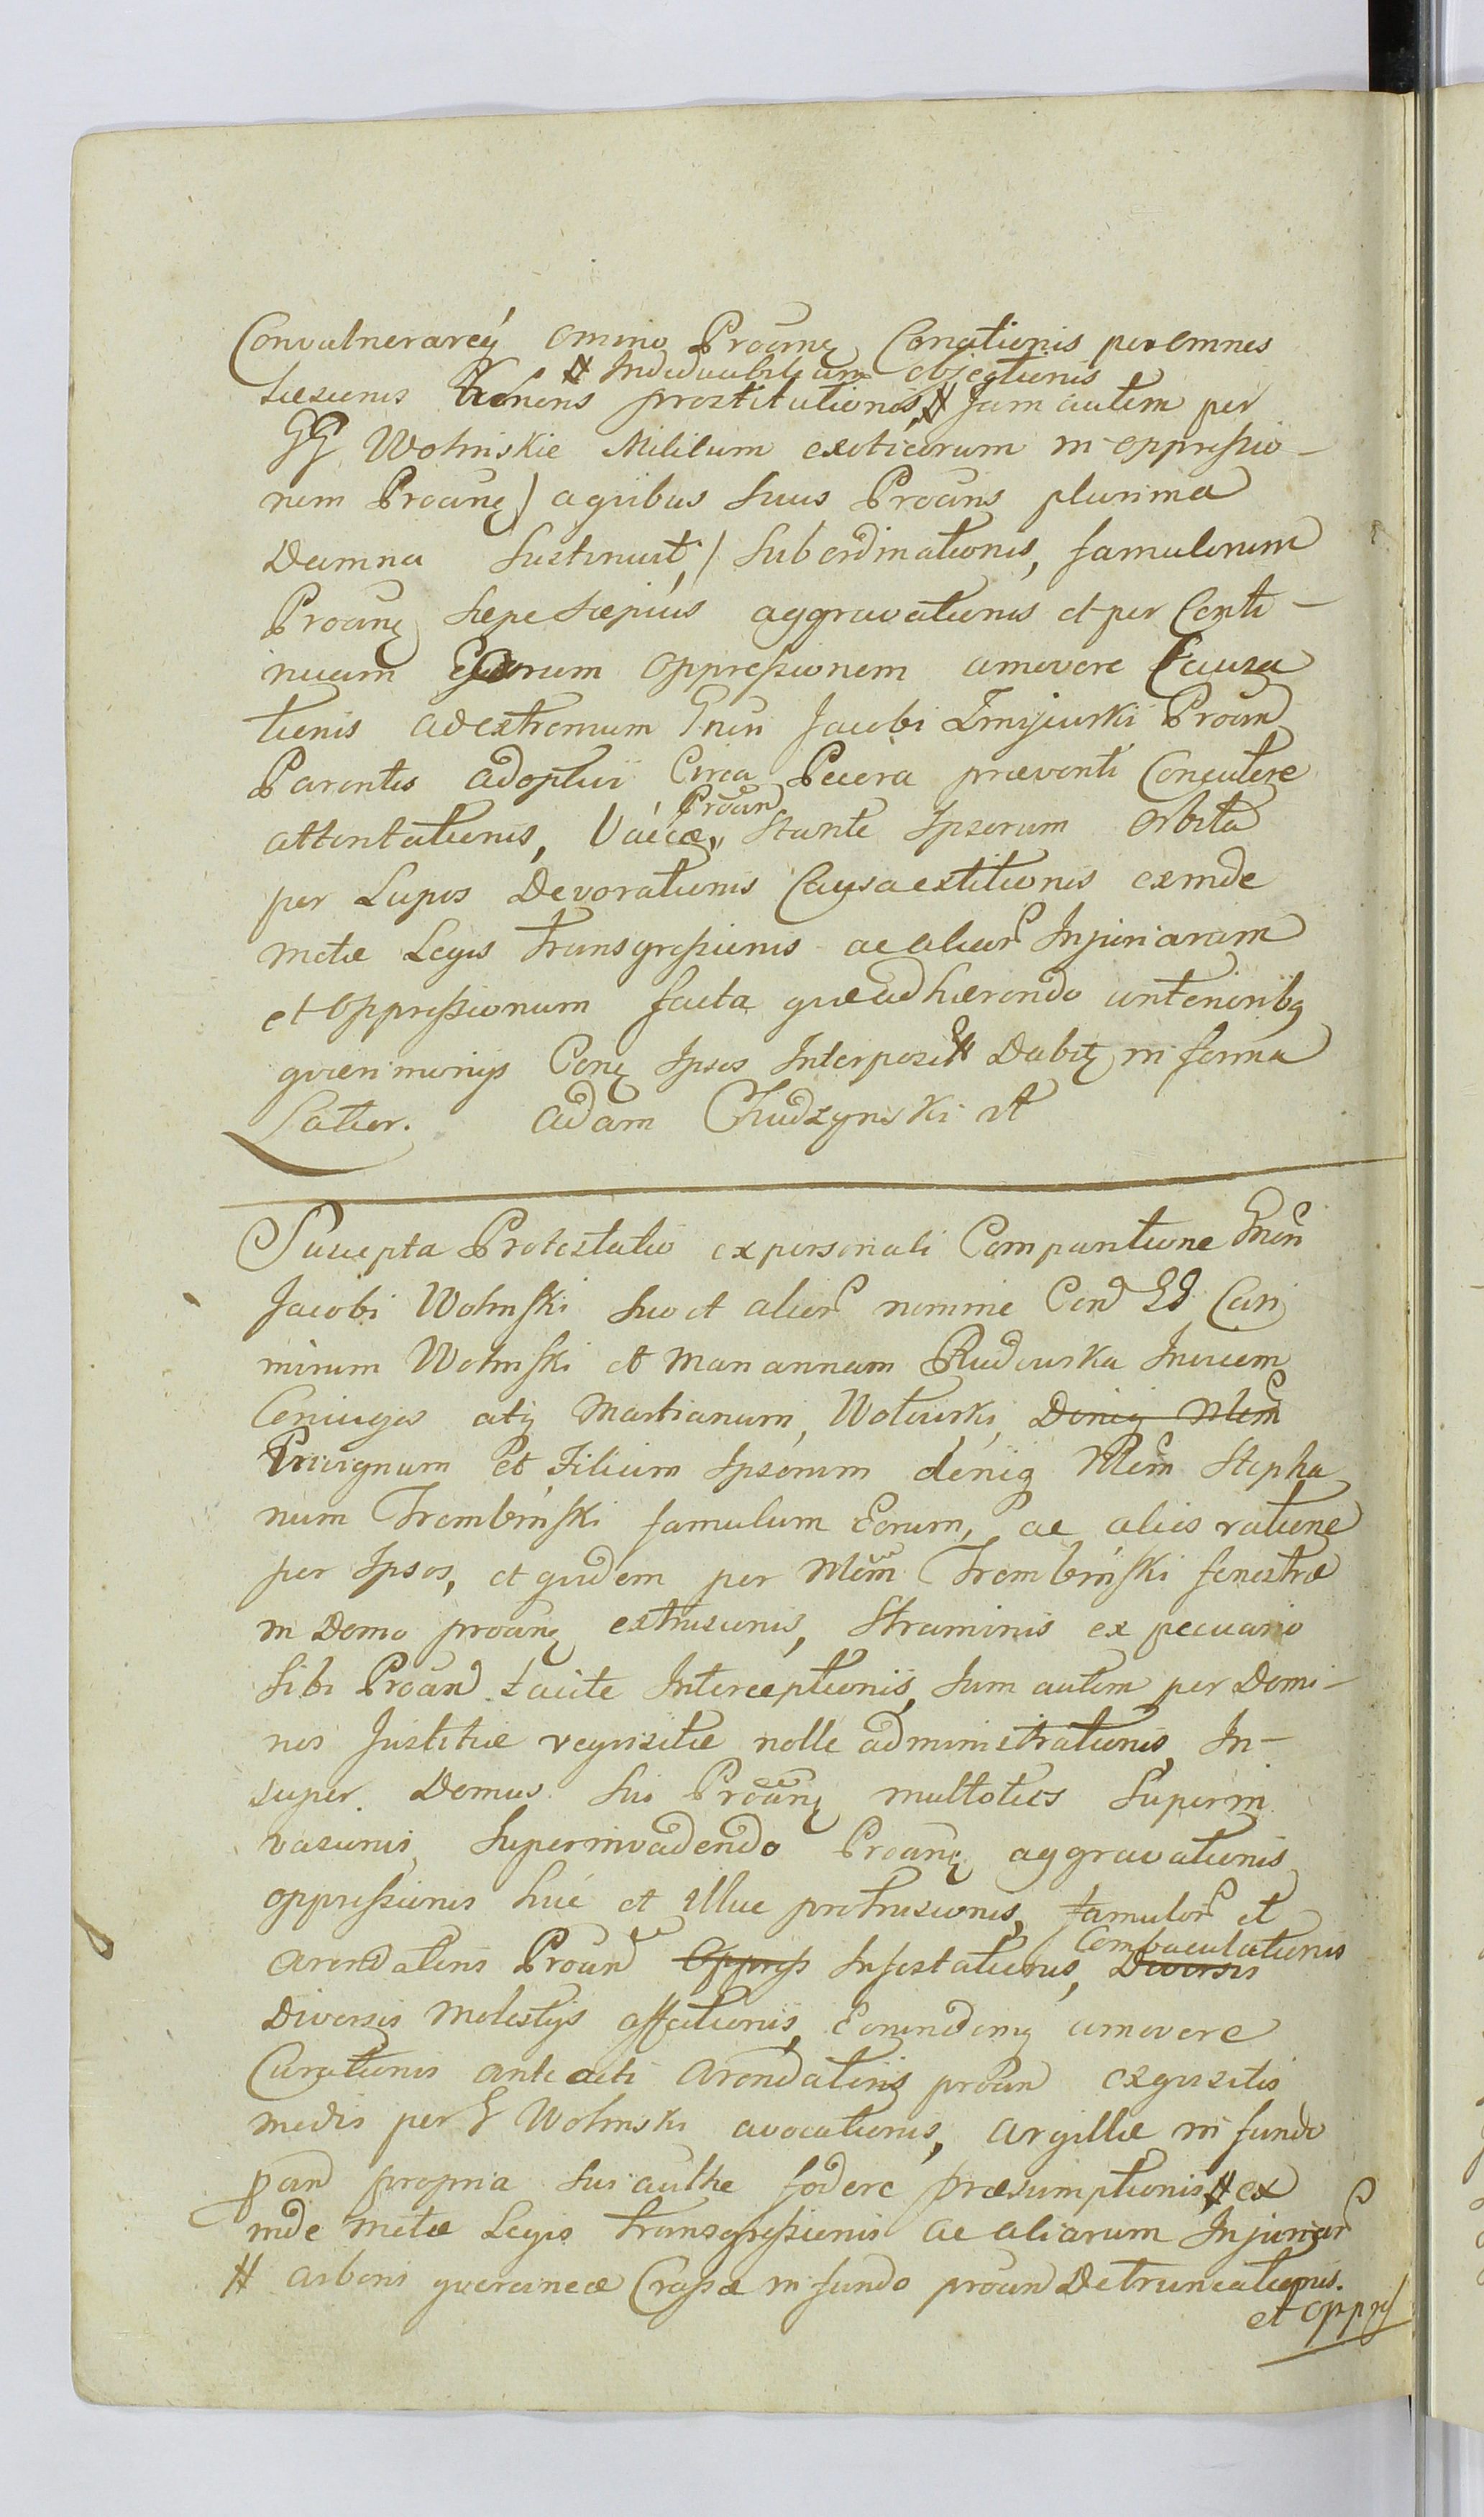 Convulnerareq́ omino Proanę Conationis per omnes
# Individualitatum objectionis
Laesionis honoris prostitutionis, # Jam autem per
GG Wolinskie Militum exoticorum in oppressio-
nem Proanę / aquibus Suus Proans plurima
Damna Sustinuit, / Subordinationis, famulorum
Proanę Saepe Saepius aggravationis et per Conti-
nuam Eorum oppressionem amovere Causa
tionis ad extremum Gnrn Jacobi Zmijewski Proan
Parentis adoptivi Circa Pecora praeventi Concutere
attentationis, Vaccae Proan Stante Ipsorum Orbita
per Lupos Devorationis Causa extitionis exinde
metae Legis transgressionis ac aliar Injuriarum
et Oppressionum facta quae adhaerendo anterioribq
querimonijs Conę Ipsos Interposit # Dabitę in forma
Latior. Adam Chudzynski rt
Suscepta Protestatio ex personali Comparitione Gnrn
Jacobi Wolinski Suo et alior nomine Con GG Casi
mirum Wolinski et Mariannam Rudowska Invicem
Coniuges atq Martianum, Wolewski, Deniq Mem
Privignum et Filium Ipsorum deniq Mem Stepha
num Trembinski famulum Eorum, ac alios ratione
per Ipsos, et quidem per Mem Trembinski fenestrae
in Domo proanę extrusionis, Straminis ex pecuario
Sibi Proan tacite Interceptionis, Jum autem per Domi-
nos Justitiae requisitae nolle administrationis, In-
super Domus Sui Proanę multoties Superin
vasionis, Superinvadendo Proanę aggravationis
oppressionis huc et illuc protrusionis, famulor et
Combaculationis
Arendatoris Proan Oppress Infestationis, Diversis
Diversis Molestijs affectionis, Eorundemq amovere
Curationis ante acti Arendatoris proan exquisitis
medis per G Wolinski avocationis, Argillae in fundo
pan propria Sui authe fodere praesumptionis, # ex
inde Metae Legis transgressionis ac aliarum Injuriar
# Arboris quercineae Crassae in fundo proan Detruncationis.
et oppres